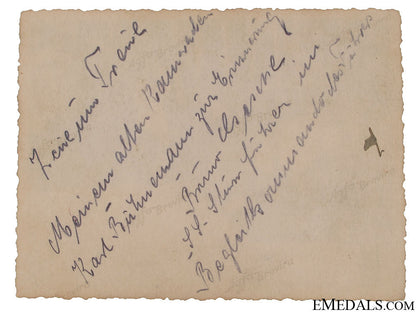 Treue um Treue
Meinem alten Kameraden
Karl Bühnemann zur Erinnerung
Bruno Gesche
SS Sturmführer im
Begleitkommando des Führers
EMEDALS.COM